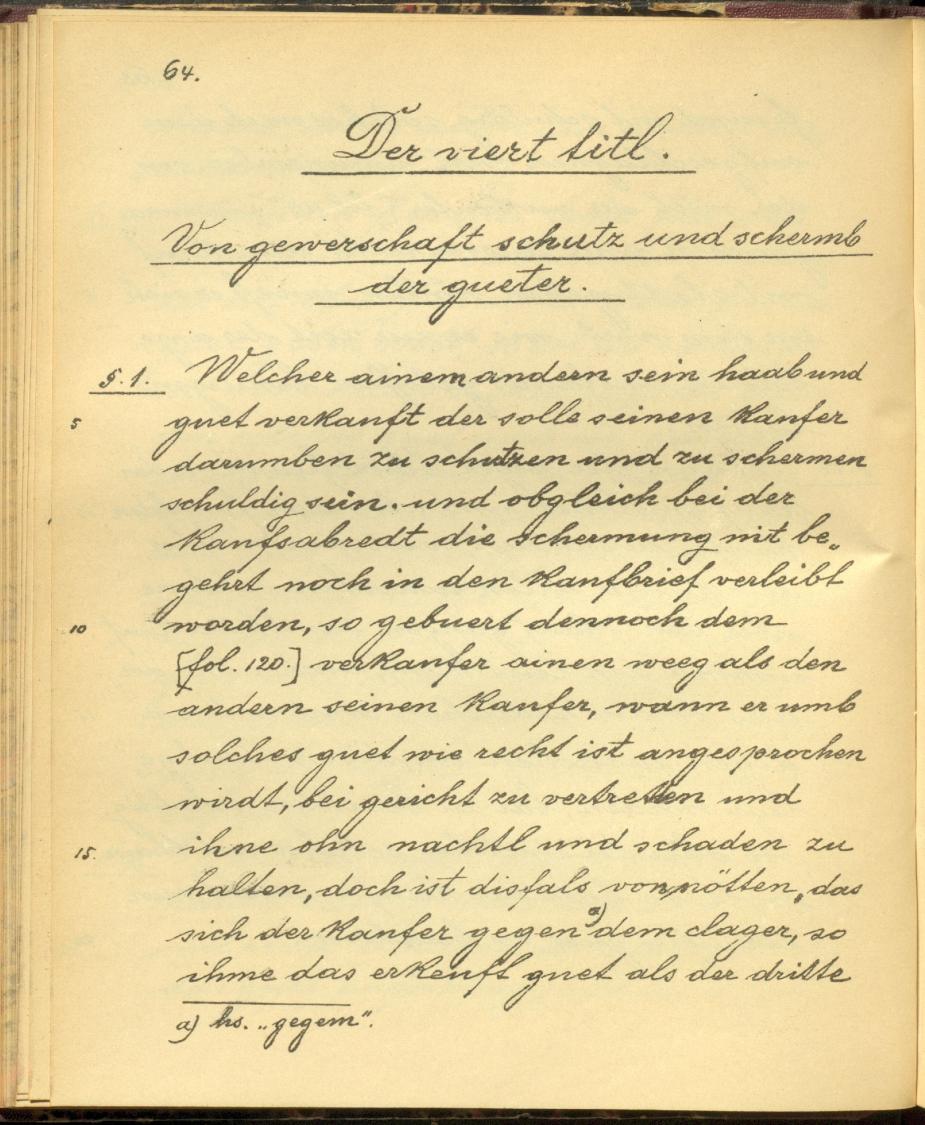 64.
Der viert titl.
Von gewerschaft schutz und schermb
der gueter.
§. 1. Welcher ainem andern sein haab und
5 guet verkauft der solle seinen kaufer
darumben zu schutzen und zu schermen
schuldig sein. und obgleich bei der
kaufsabredt die schermung nit be„
gehrt noch in den kaufbrief verleibt
10 worden, so gebuert dennoch dem
[fol. 120.] verkaufer ainen weeg als den
andern seinen kaufer, wann er umb
solches guet wie recht ist angesprochen
wirdt, bei gericht zu vertretten und
15. ihne ohn nachtl und schaden zu
halten, doch ist disfals von nötten, das
sich der kaufer gegen a) dem clager, so
ihme das erkeuft guet als der dritte
a) hs. „gegem".